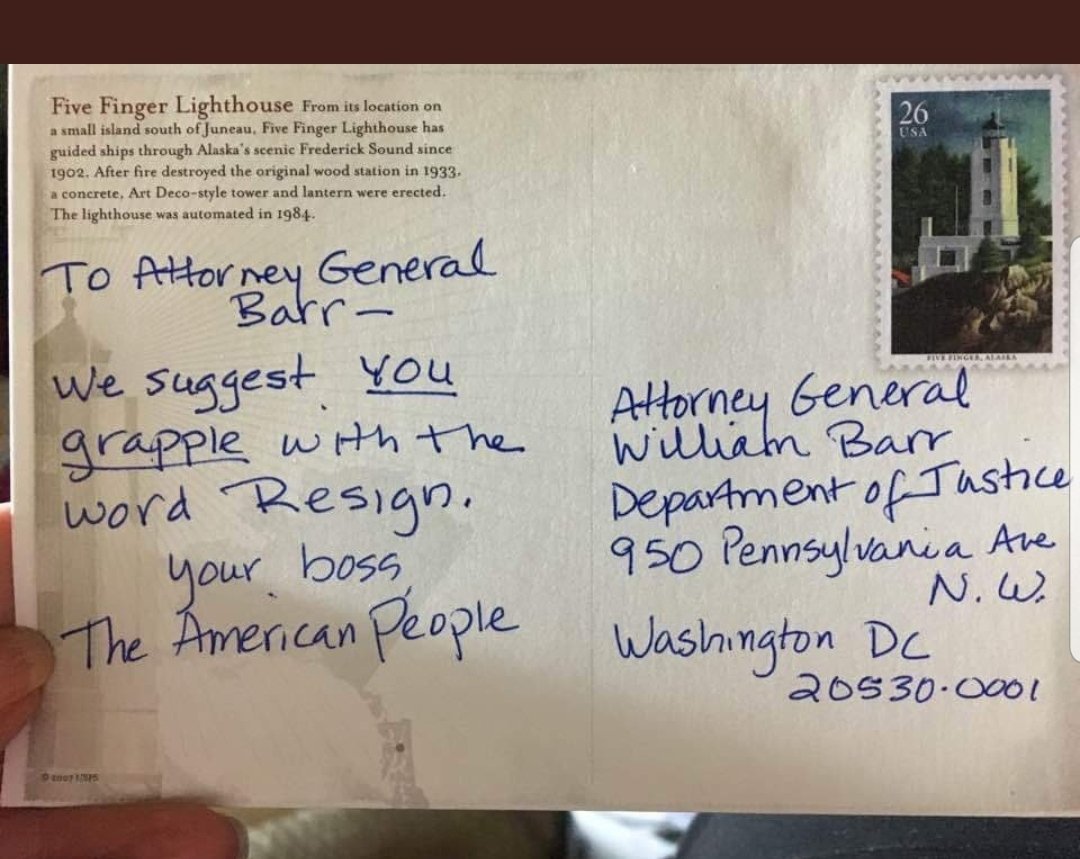 Five Finger Lighthouse From its location on
a small island south of Juneau, Five Finger Lighthouse has
guided ships through Alaska's scenic Frederick Sound since
1902. After fire destroyed the original wood station in 1933,
a concrete, Art Deco-style tower and lantern were erected.
The lighthouse was automated in 1984.
To Attorney General
Barr —
We suggest YOU
grapple with the
word Resign.
your boss,
The American People
© 2007 USPS
26
USA
FIVE FINGER, ALASKA
Attorney General
William Barr
Department of Justice
950 Pennsylvania Ave
N.W.
Washington DC
20530-0001